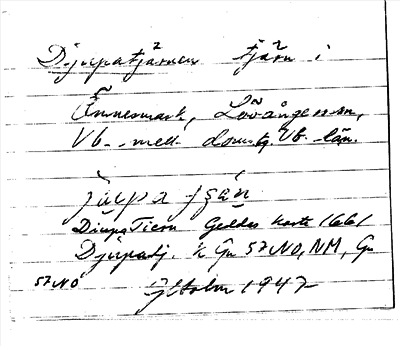 Djupatjärnen tjärn i
Önnesmark, Lövångers sn,
Vb.-mell. domsg. Vb. län.
DiupaTiern Geddas karta 1661
Djupadj. k Gu 57 NO, NM, Gu
57 NO
1947